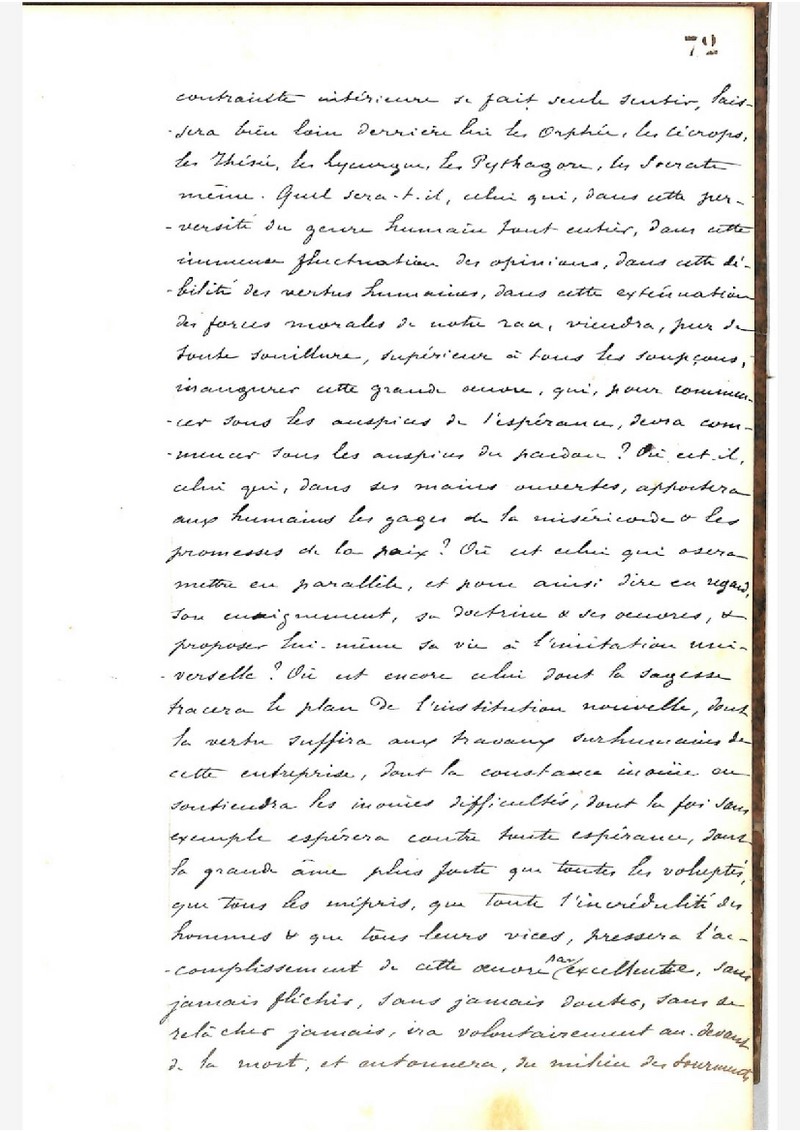 72
contrainte intérieure se fait seule sentir, lais-
-sera bien loin derrière lui les Orphée, les Cécrops,
les Thésée, les Lycurgue, les Pythagore, les Socrate
même. Quel sera-t-il, celui qui, dans cette per-
-versité du genre humain tout entier, dans cette
immense fluctuation des opinions, dans cette dé-
-bilité des vertus humaines, dans cette exténuation
des forces morales de notre race, viendra, pur de
toute souillure, supérieur à tous les soupçons,
inaugurer cette grande œuvre, qui, pour commen-
-cer sous les auspices de l'espérance, devra com-
-mencer sous les auspices du pardon ? Où est-il,
celui qui, dans ses mains ouvertes, apportera
aux humains les gages de la miséricorde & les
promesses de la paix ? Où est celui qui osera
mettre en parallèle, et pour ainsi dire en regard,
son enseignement, sa doctrine & ses œuvres, &
proposer lui-même sa vie à l'imitation uni-
-verselle ? Où est encore celui dont la sagesse
tracera le plan de l'institution nouvelle, dont
la vertu suffira aux travaux surhumains de
cette entreprise, dont la constance inouïe en
soutiendra les inouïes difficultés, dont la foi sans
exemple espérera contre toute espérance, dont
la grande âme plus forte que toutes les voluptés,
que tous les mépris, que toute l'incrédulité des
hommes & que tous leurs vices, pressera l'ac-
-complissement de cette œuvre par excellence, sans
jamais fléchir, sans jamais douter, sans se
relâcher jamais, ira volontairement au-devant
de la mort, et entonnera, du milieu des tourments